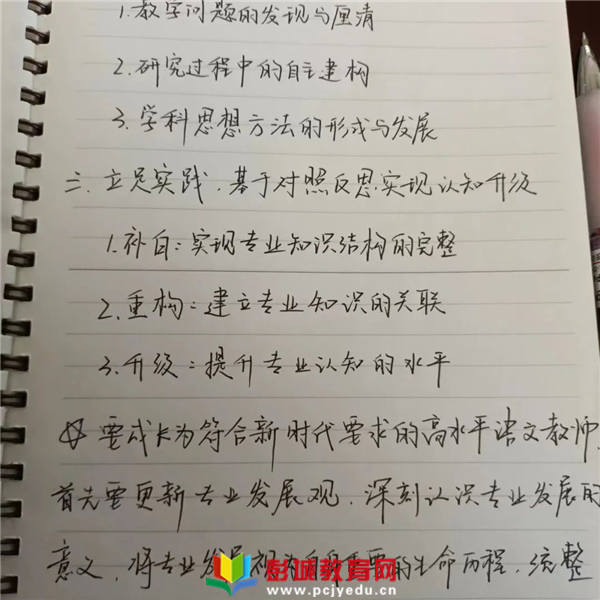 1.教学问题的发现与厘清
2.研究过程中的自主建构
3.学科思想方法的形成与发展
三、立足实践,基于对照反思实现认知升级
1.补白:实现专业知识结构的完整
2.重构:建立专业知识的关联
3.升级:提升专业认知的水平
☆要成长为符合新时代要求的高水平语文教师,
首先要更新专业发展观,深刻认识专业发展的
意义,将专业发展视为自身重要的生命历程,统整
彭城教育网
www.pcjyedu.cn